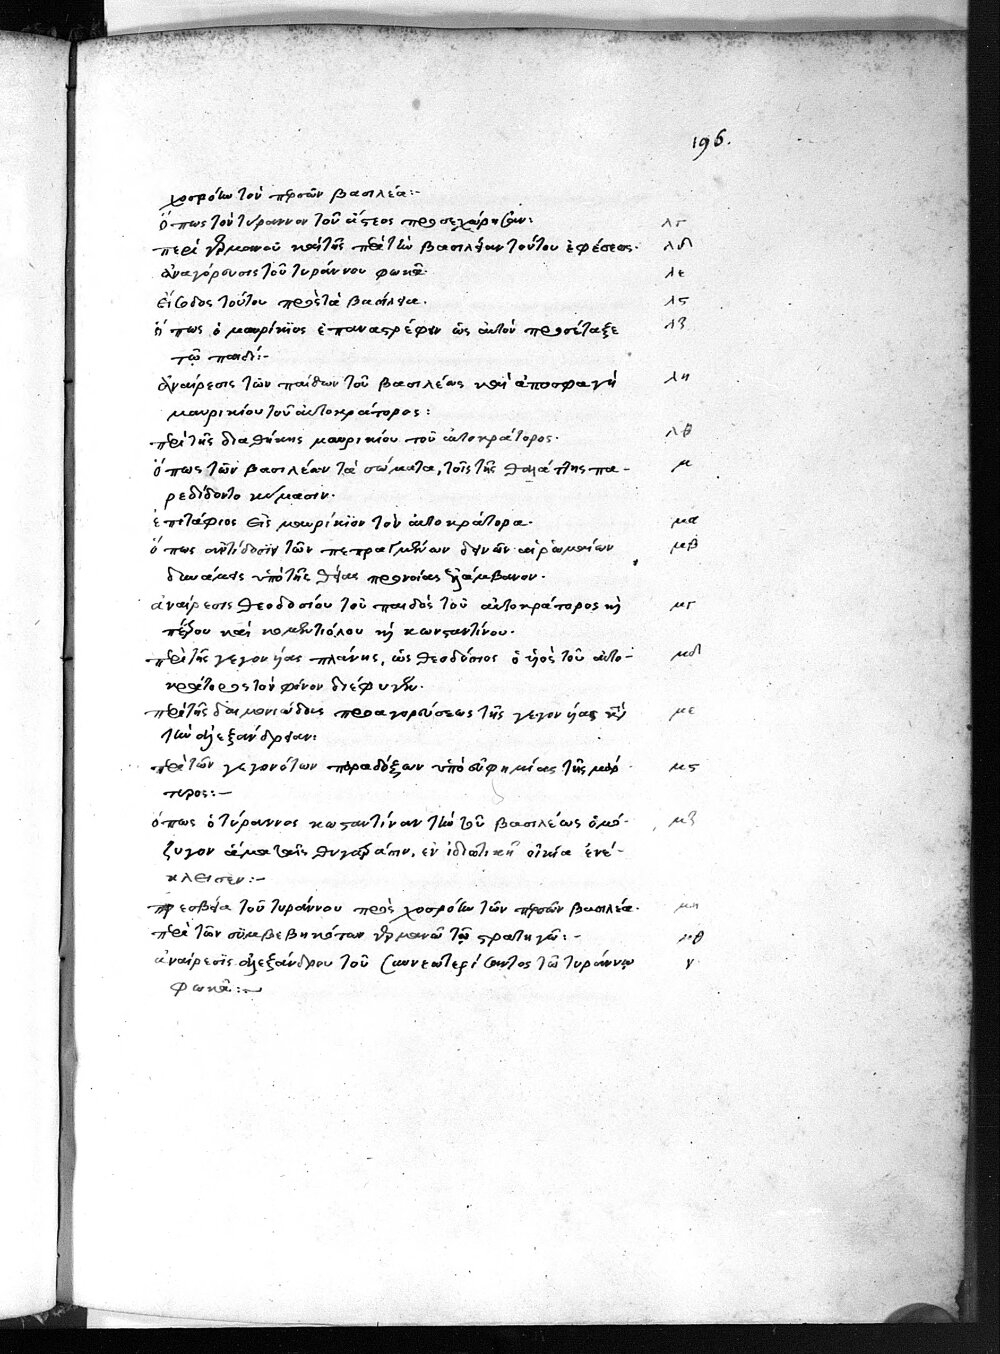 196.
χοσρόην τὸν περσῶν βασιλέα:-
ὅπως τὸν τύραννον τοῦ ἄστεος προσεχώρησαν: λγ
περὶ γερμανοῦ καὶ τῆς περὶ τὴν βασιλείαν τούτου ἐφέσεως. λδ
ἀναγόρευσις τοῦ τυράννου φωκᾶ. λε
εἴσοδος τούτου πρὸς τὰ βασίλεια. λς
ὅπως ὁ μαυρίκιος ἐπαναστρέφειν ὡς αὐτὸν προσέταξε λζ
τῷ παιδί:-
ἀναίρεσις τῶν παίδων τοῦ βασιλέως καὶ ἀποσφαγὴ λη
μαυρικίου τοῦ αὐτοκράτορος:
περὶ τῆς διαθήκης μαυρικίου τοῦ αὐτοκράτορος. λθ
ὅπως τῶν βασιλέων τὰ σώματα, τοῖς τῆς θαλάττης πα- μ
ρεδίδοντο κύμασιν.
ἐπιτάφιος εἰς μαυρίκιον τὸν αὐτοκράτορα. μα
ὅπως ἀντίδοσιν τῶν πεπραγμένων δεινῶν αἱ ῥωμαίων μβ
δυνάμεις ὑπὸ τῆς θείας προνοίας ἐλάμβανον.
ἀναίρεσις θεοδοσίου τοῦ παιδὸς τοῦ αὐτοκράτορος κὴ μγ
πέτρου καὶ κομεντιόλου κὴ κωνσταντίνου.
περὶ τῆς γεγονυίας πλάνης, ὡς θεοδόσιος ὁ υἱὸς τοῦ αὐτο- μδ
κράτορος τὸν φόνον διέφυγεν.
περὶ τῆς δαιμονιώδους προαγορεύσεως τῆς γεγονυίας κατὰ με
τὴν ἀλεξάνδρειαν:
περὶ τῶν γεγονότων παραδόξων ὑπὸ εὐφημίας τῆς μάρ- μς
τυρος:-
ὅπως ὁ τύραννος κωσταντίναν τὴν τοῦ βασιλέως ὁμό- μζ
ζυγον ἅμα ταῖς θυγατράσιν, ἐν ἰδιωτικῇ οἰκία ἐνέ-
κλεισεν:-
πρεσβεία τοῦ τυράννου πρὸς χοσρόην τῶν περσῶν βασιλέα. μη
περὶ τῶν συμβεβηκότων γερμανῷ τῷ στρατηγῷ:- μθ
ἀναίρεσις ἀλεξάνδρου τοῦ συννεωτερίσαντος τῶ τυράννῳ ν
φωκᾶ:-